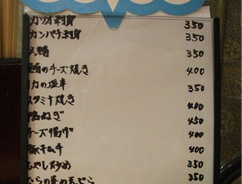 カツオ刺身 350
カンパチ刺身 350
350
のチーズ焼き 400
イカの塩辛 350
スタミナ焼き 400
ねぎ 450
チーズ揚げ 400
豚キムチ 400
もやし炒め 350
の天ぷら 350